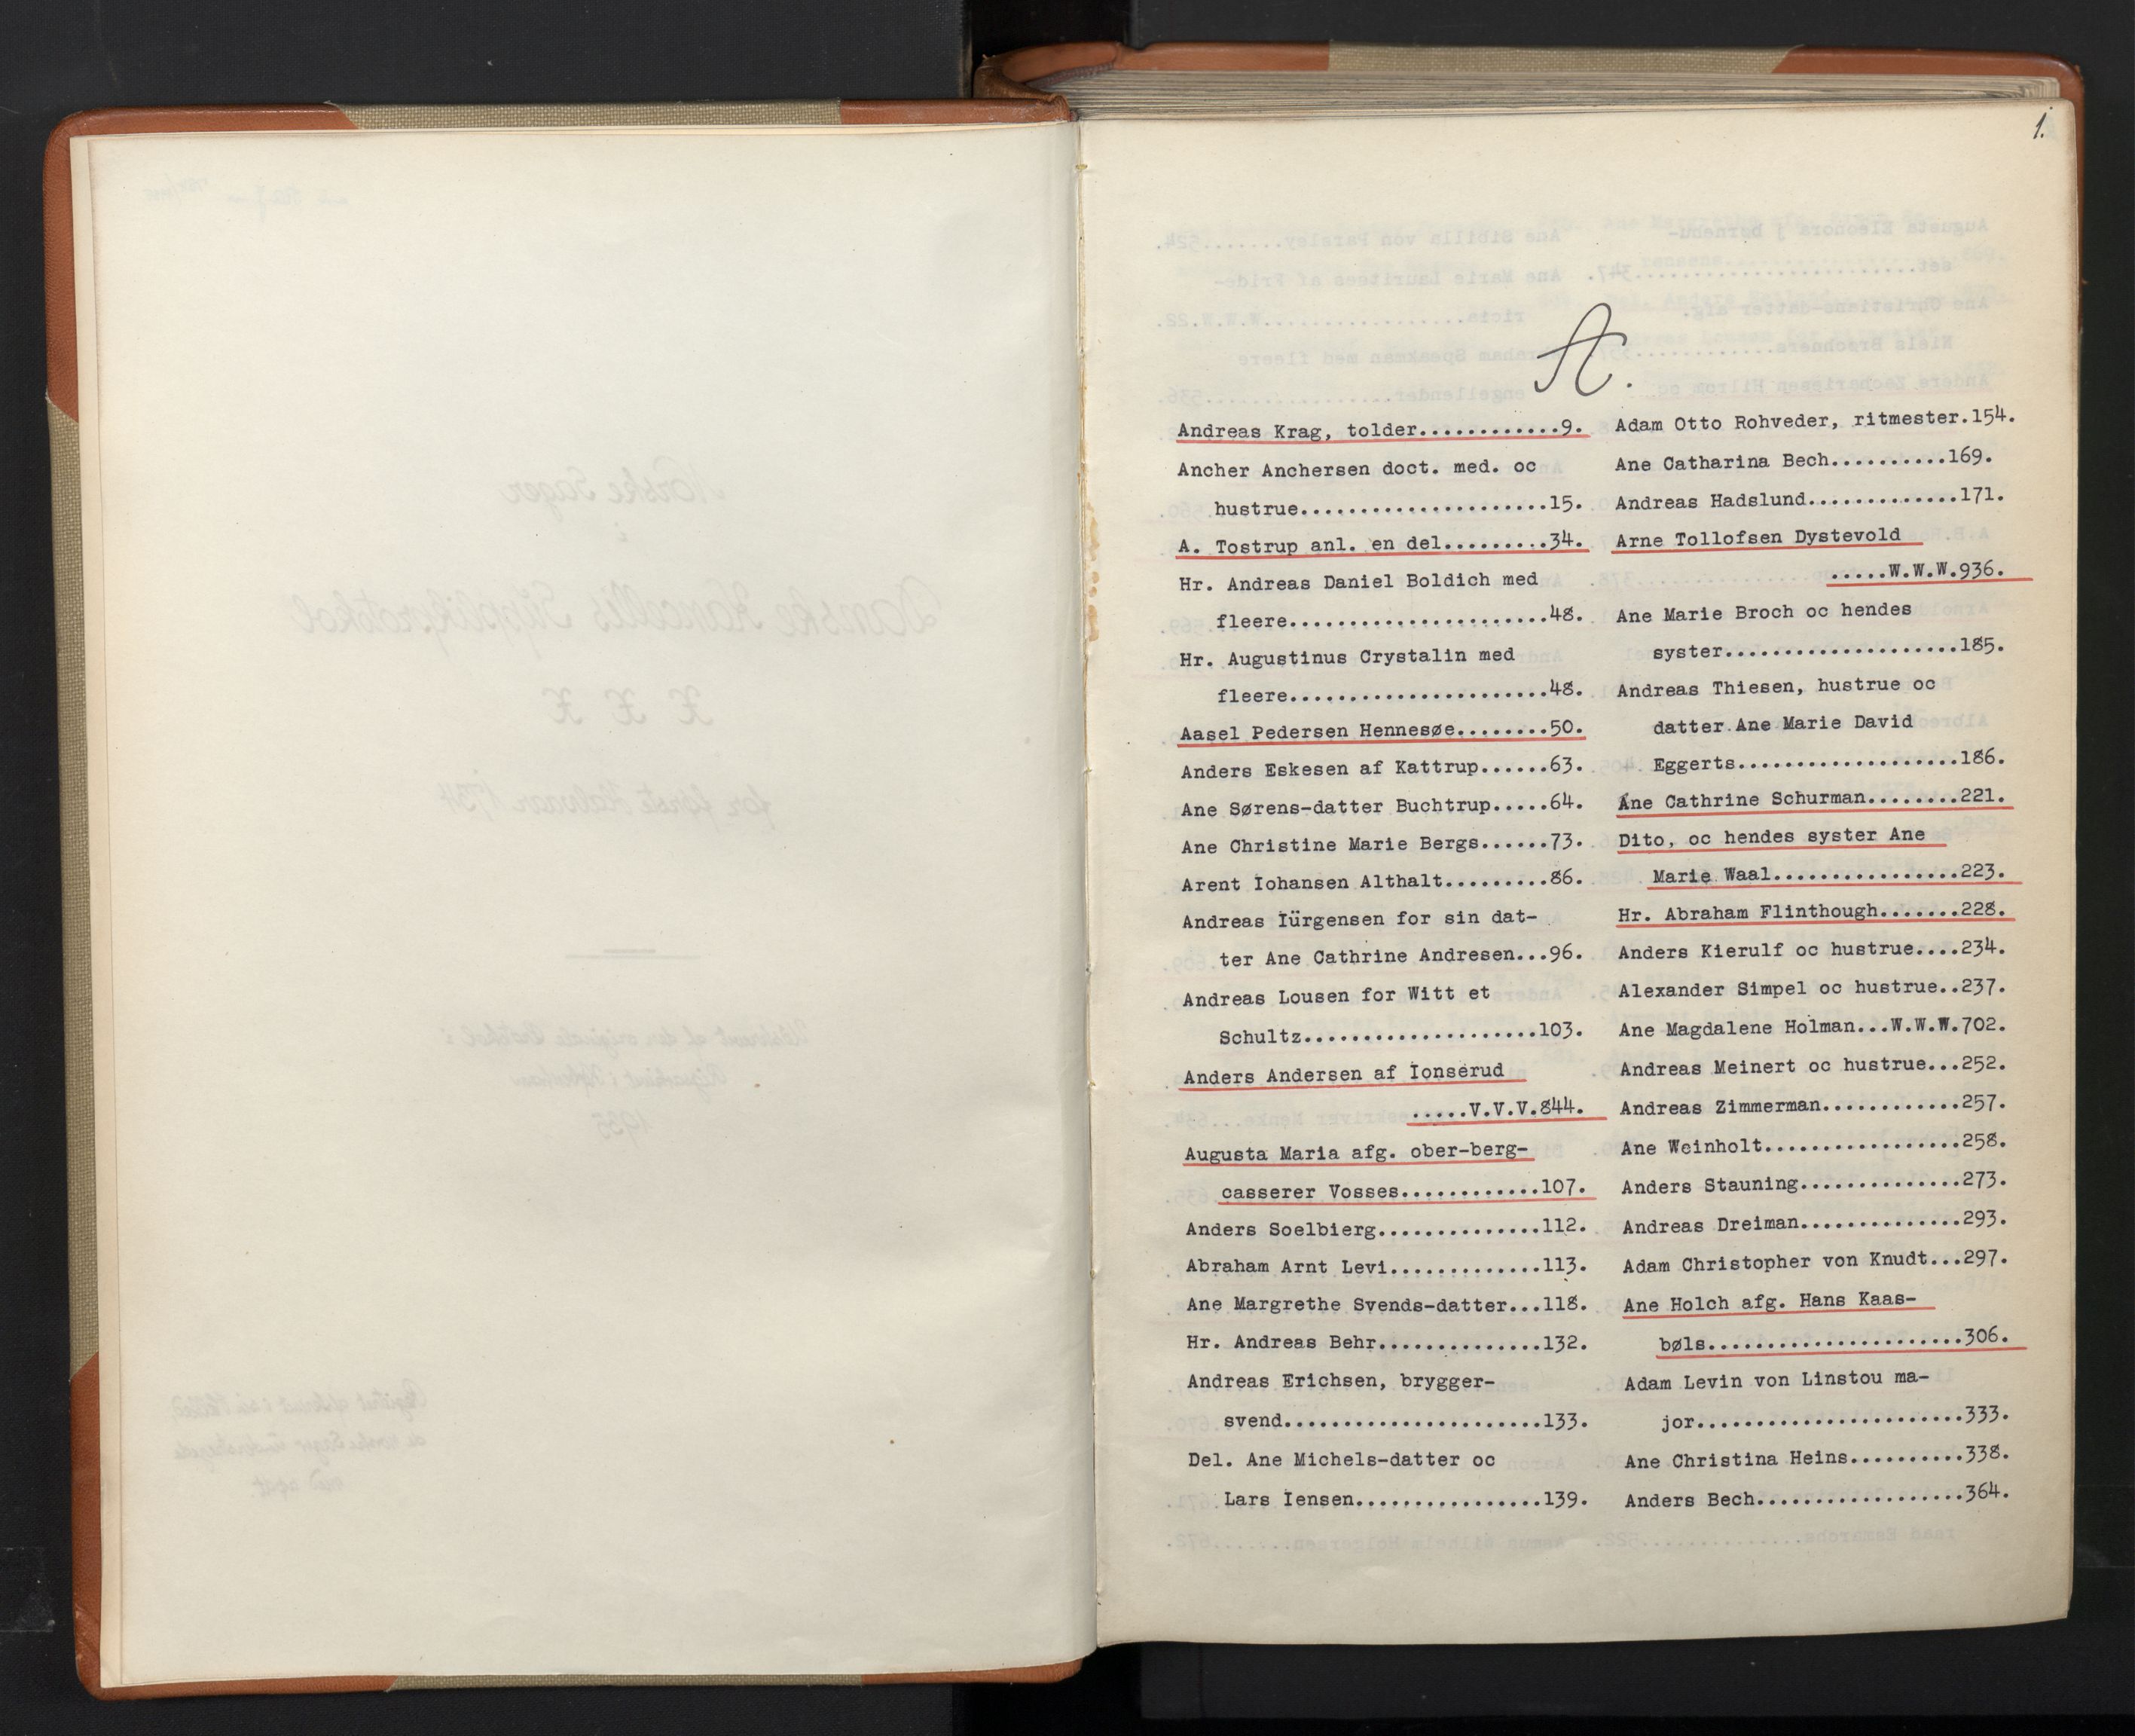 1.
A.
Andreas Krag, tolder............9.
Ancher Anchersen doct. med. oc
hustrue.....................15.
A. Tostrup anl. en del.........34.
Hr. Andreas Daniel Boldich med
fleere......................48.
Hr. Augustinus Crystalin med
fleere......................48.
Aasel Pedersen Hennesøe........50.
Anders Eskesen af Kattrup......63.
Ane Sørens-datter Buchtrup.....64.
Ane Christine Marie Bergs......73.
Arent Iohansen Althalt.........86.
Andreas Iürgensen for sin dat-
ter Ane Cathrine Andresen...96.
Andreas Lousen for Witt et
Schultz....................103.
Anders Andersen af Ionserud
.....V.V.V.844.
Augusta Maria afg. ober-berg-
casserer Vosses............107.
Anders Soelbierg..............112.
Abraham Arnt Levi.............113.
Ane Margrethe Svends-datter...118.
Hr. Andreas Behr..............132.
Andreas Erichsen, brygger-
svend......................133.
Del. Ane Michels-datter oc
Lars Iensen................139.
Adam Otto Rohveder, ritmester.154.
Ane Catharina Bech..........169.
Andreas Hadslund.............171.
Arne Tollofsen Dystevold
.....W.W.W.936.
Ane Marie Broch oc hendes
syster....................185.
Andreas Thiesen, hustrue oc
datter Ane Marie David
Eggerts...................186.
Ane Cathrine Schurman........221.
Dito, oc hendes syster Ane
Marie Waal................223.
Hr. Abraham Flinthough.......228.
Anders Kierulf oc hustrue....234.
Alexander Simpel oc hustrue..237.
Ane Magdalene Holman...W.W.W.702.
Andreas Meinert oc hustrue...252.
Andreas Zimmerman............257.
Ane Weinholt.................258.
Anders Stauning..............273.
Andreas Dreiman..............293.
Adam Christopher von Knudt...297.
Ane Holch afg. Hans Kaas-
bøls......................306.
Adam Levin von Linstou ma-
jor.......................333.
Ane Christina Heins..........338.
Anders Bech..................364.